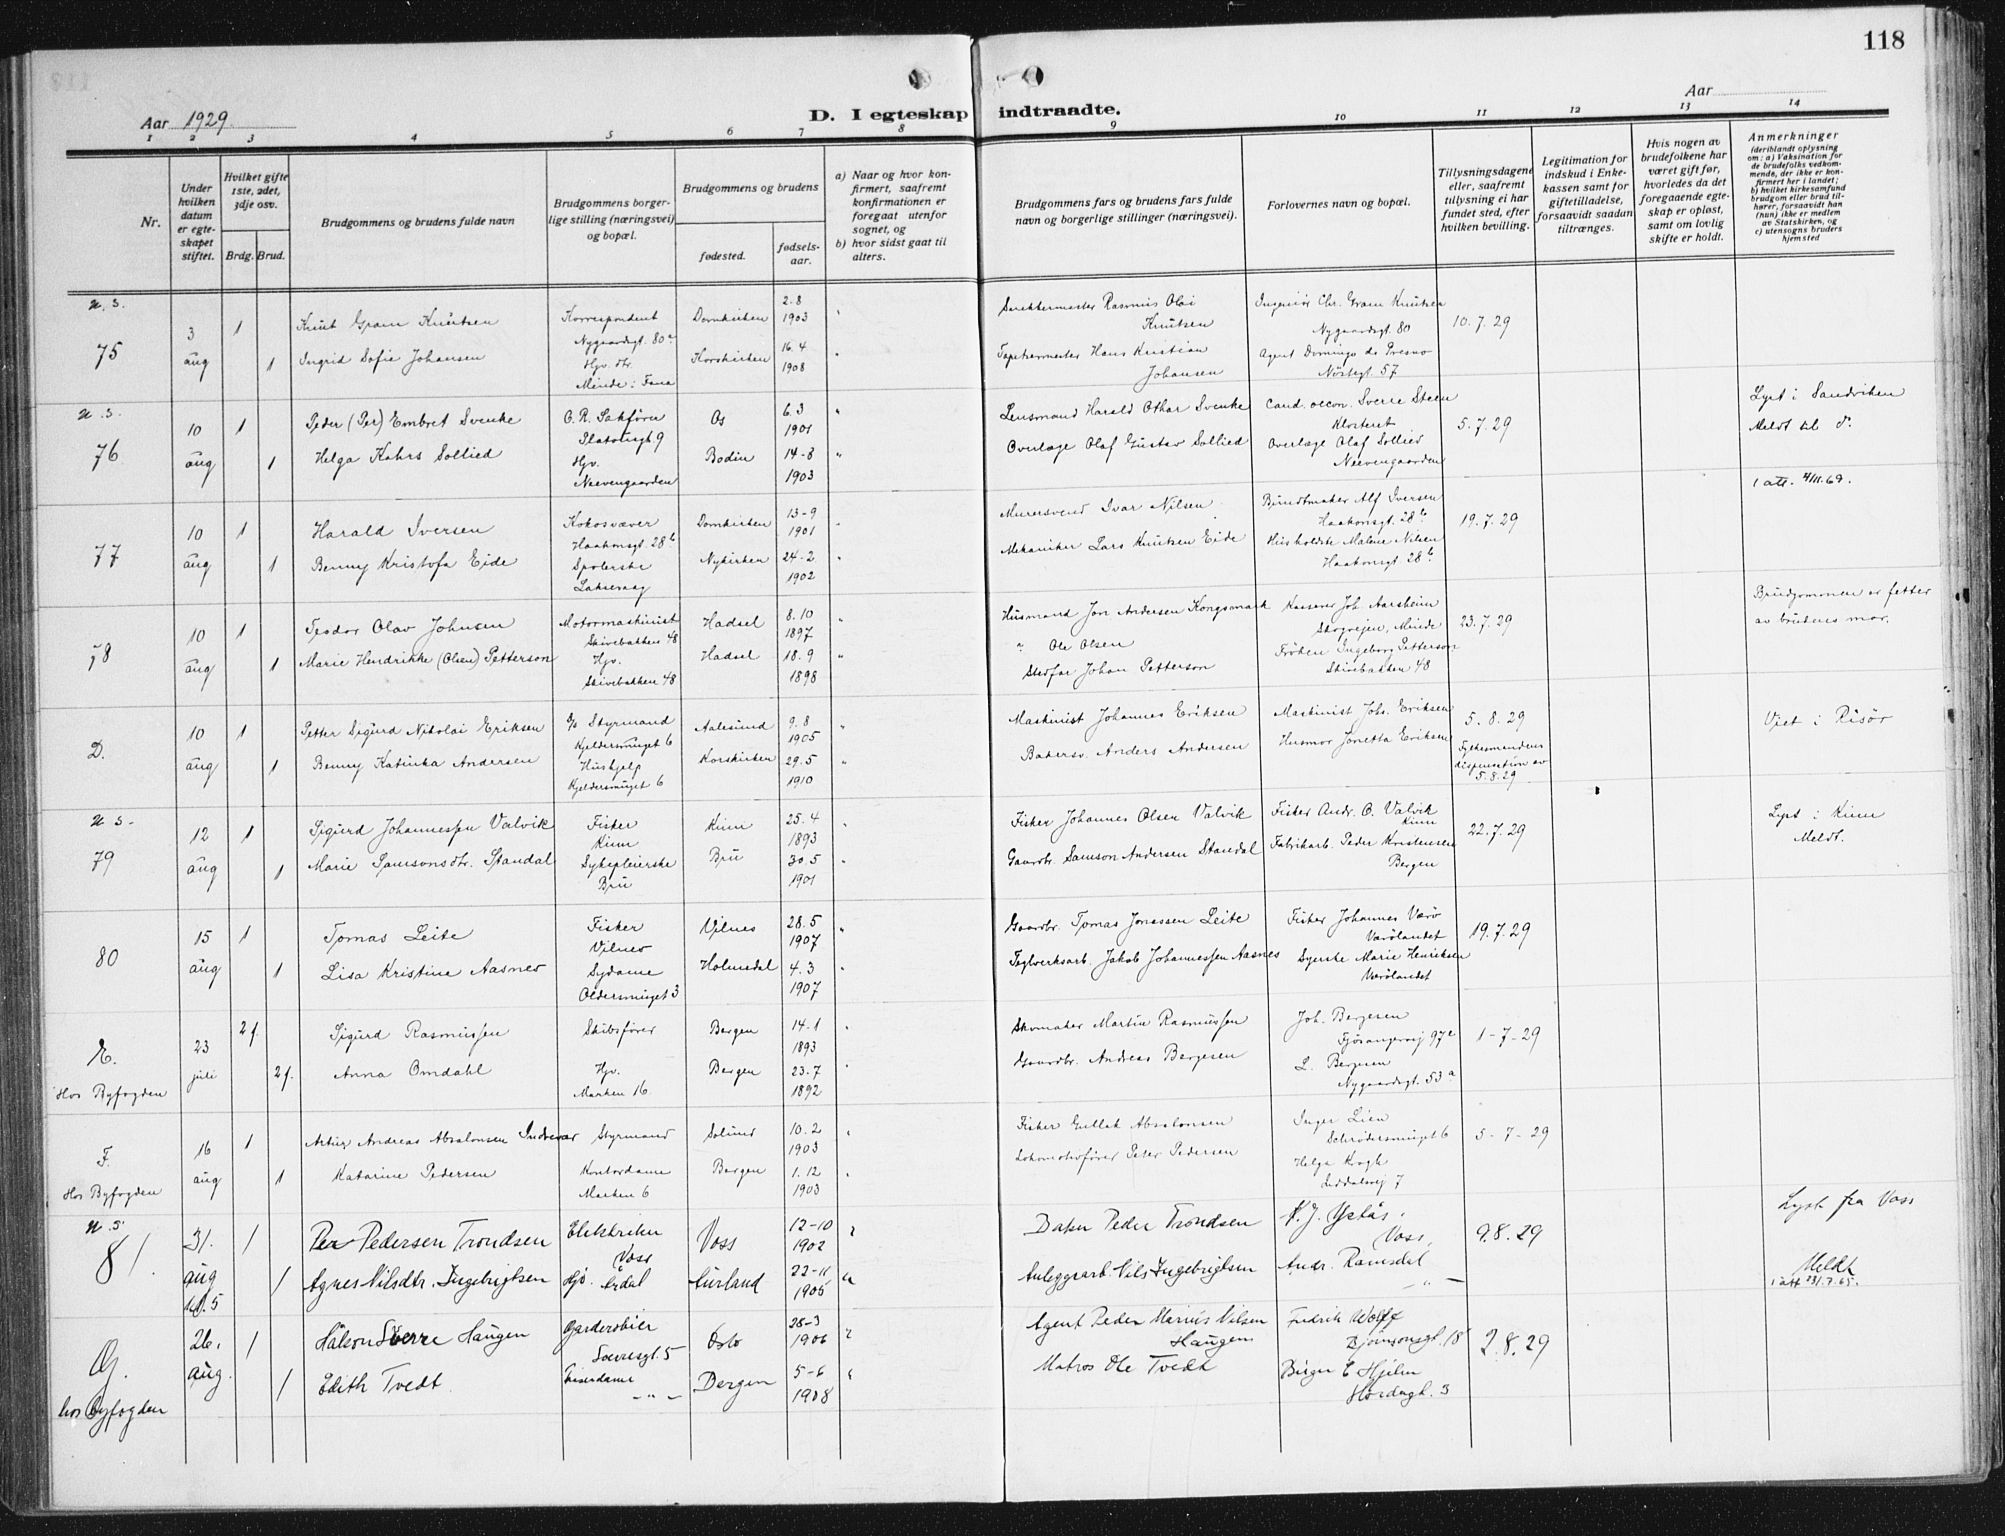 118
Aar 1929.
D. I egteskap indtraadte.
Aar
1 2 3 4 5 6 7 8 9 10 11 12 13 14
Nr.
Under hvilken datum er egteskapet stiftet.
Hvilket gifte 1ste, 2det, 3dje osv.
Brdg. Brud.
Brudgommens og brudens fulde navn
Brudgommens borgerlige stilling (næringsvei) og bopæl.
Brudgommens og brudens
fødested.
fødselsaar.
a) Naar og hvor konfirmert, saafremt konfirmationen er foregaat utenfor sognet, og
b) hvor sidst gaat til alters.
Brudgommens fars og brudens fars fulde navn og borgerlige stillinger (næringsvei).
Forlovernes navn og bopæl.
Tillysningsdagene eller, saafremt tillysning ei har fundet sted, efter hvilken bevilling.
Legitimation for indskud i Enkekassen samt for giftetilladelse, forsaavidt saadan tiltrænges.
Hvis nogen av brudefolkene har været gift før, hvorledes da det foregaaende egteskap er opløst, samt om lovlig skifte er holdt.
Anmerkninger
(deriblandt oplysning om: a) Vaksination for de brudefolks vedkommende, der ikke er konfirmert her i landet; b) hvilket kirkesamfund brudgom eller brud tilhører, forsaavidt han (hun) ikke er medlem av Statskirken, og c) utensogns bruders hjemsted
N. S.
75
3 aug
1
Knut Gram Knutsen
Korrespondent
Nygaardsgt. 80a
Domkirken
2.8
1903
Rasmus Olai Knutsen
Ingeniør Chr. Gram Knutsen
Nygaardsgt. 80
10.7.29
1
Ingrid Sofie Johansen
Hjv. Str.
Minde i Fana
Korskirken
16.4
1908
Tapetsermester Hans Kristian Johansen
Agent Domingo de Presno
Nøstegt. 57
N. S.
76
10 aug
1
Peder (Per) Embret Svenke
O. R. Sakfører
Os
6.3
1901
Lensmand Harald Othar Svenke
Cand. oecon. Sverre Steen
Klosteret
5.7.29
Lyst i Sandviken
Meldt til do
1
Helga Kahrs Sollied
Hjv.
Neevengaarden
Bodin
14-8
1903
Overlæge Olaf Gustav Sollied
Overlæge Olaf Sollied
Neevengaarden
1 att. 4/11.69.
77
10 aug
1
Harald Iversen
Kokosvæver
Haakonsgt. 28b
Domkirken
13-9
1901
Murersvend Ivar Nilsen
Buntmaker Alf Iversen
Haakonsgt. 28b
19.7.29
1
Benny Kristofa Eide
Spolerske
Laksevaag
Nykirken
24-2
1902
Mekaniker Lars Knutsen Eide
Husholdste Malene Nilsen
Haakonsgt 28b
78
10 aug
1
Teodor Olav Johnsen
Motormaskinist
Skivebakken 48
Hadsel
8.10
1897
Husmand Jon Andersen Kongsmark
Kasserer Joh. Aarsheim
Skogveien, Minde
23.7.29
Brudgommen er fetter av brudens mor.
1
Marie Hendrikke (Olsen) Petterson
Hjv.
Skivebakken 48
Hadsel
18.9
1898
" Ole Olsen
Stedfar Johan Petterson
Frøken Ingeborg Petterson
Skivebakken 48
D.
10 aug
1
Petter Sigurd Nikolai Eriksen
Styrmand
Kjeldersmuget 6
Aalesund
9.8
1905
Maskinist Johannes Eriksen
Maskinist Johs. Eriksen
5.8.29
Fylkesmandens dispensation av 5.8.29
Viet i Risør
1
Benny Katinka Andersen
Hushjelp
Kjeldersmuget 6
Korskirken
29.5
1910
Bakersv. Anders Andersen
Husmor Jonetta Eriksen
N. S.
79
12 aug
1
Sigurd Johannessen Valvik
Fisker
Kinn
Kinn
25.4
1893
Fisker Johannes Olsen Valvik
Fisker Andr. O. Valvik
Kinn
22.7.29
Lyst i Kinn
Meldt.
1
Marie Samsonsdtr. Standal
Sykepleierske
Bru
Bru
30.5
1901
Gaardbr. Samson Andersen Standal
Fabrikarb. Peder Kristensen
Bergen
80
15 aug
1
Tomas Leite
Fisker
Vilnes
Vilnes
28.5
1907
Gaardbr. Tomas Jonassen Leite
Fisker Johannes Værø
Værølandet
19.7.29
1
Lisa Kristine Aasnes
Sydame
Oldersmuget 3
Holmedal
4.3
1907
Teglverksarb. Jakob Johannessen Aasnes
Syerske Marie Henriksen
Værølandet
E.
Hos Byfogden
23 juli
2 f.
Sigurd Rasmussen
Skibsfører
Bergen
14-1
1893
Skomaker Martin Rasmussen
Joh. Bergesen
Fjøsangervei 97c
1-7-29
2 f.
Anna Omdahl
Hjv.
Marken 16
Bergen
23.7
1892
Gaardbr. Andreas Bergesen
L. Bergesen
Nygaardsgt. 53a
F.
Hos Byfogden
16 aug
1
Artur Andreas Absalonsen Indrevær
Styrmand
Solund
10.2
1903
Fisker Absalonsen
Inger Lien
Schrødersmuget 6
5-7-29
1
Katarine Pedersen
Kontordame
Marken 6
Bergen
1.12
1903
Lokomotivfører Peter Pedersen
Helga Krogh
7
N. S.
81.
31. aug
1
Per Pedersen Trondsen
Elektriker
Voss
Voss
12-10
1902
Baker Peder Trondsen
Voss
9.8.29
Lyst fra Voss
1
Agnes Nilsdtr. Ingebrigtsen
Hjv. Årdal
Aurland
22-11
1905
Anleggsarb. Nils Ingebrigtsen
Andr. Ramsdal
- " -
Meldt
1 att 23/7.65.
G.
hos Byfogden
26. aug.
1
Håkon Sverre Haugen
Garderobier
Sverresgt. 5
Oslo
28-3
1906
Agent Peder Marius Nilsen Haugen
Fredrik Wolff
Bjørnsonsgt. 18
2.8.29
1
Edith Tvedt
Frisørdame
- " -
Bergen
5-6
1908
Matros Ole Tvedt
Birger E Hjelm
Hordagt. 3